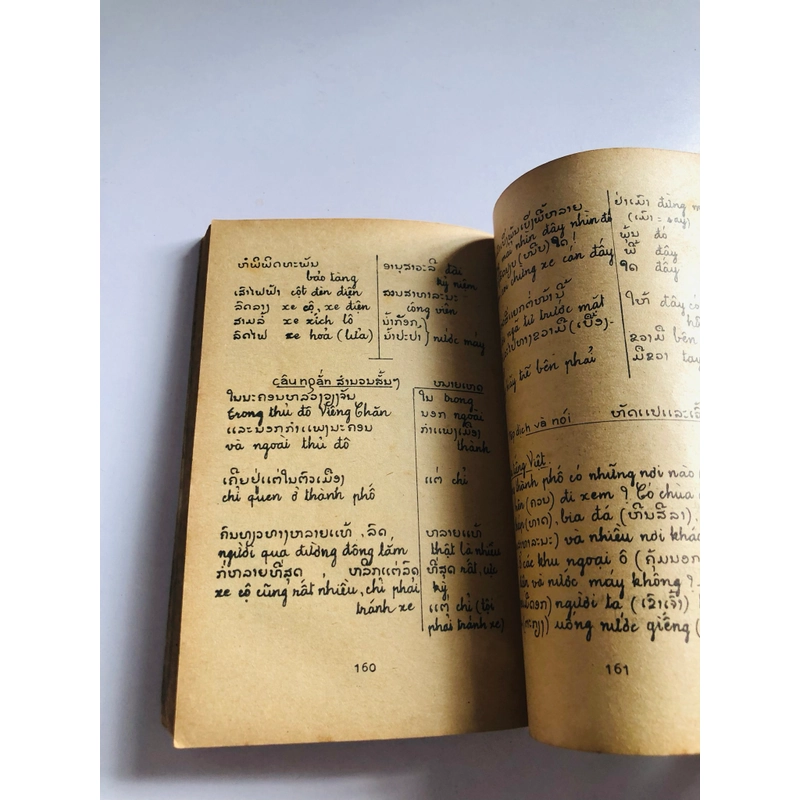 ຫໍພິພິດທະພັນ
bảo tàng
ເສົາໄຟຟ້າ cột đèn điện
ລົດລາງ xe cộ, xe điện
ສາມລໍ້ xe xích lô
ລົດໄຟ xe hoả (lửa)
ອານຸສາວະລີ đài
kỷ niệm
ສວນສາທາລະນະ
công viên
ນ້ຳກ໊ອກ,
ນ້ຳປະປາ nước máy
Câu ngắn ສຳນວນສັ້ນໆ
ໃນນະຄອນຫລວງວຽງຈັນ
trong thủ đô Viêng Chăn
ແລະນອກກຳແພງນະຄອນ
và ngoài thủ đô
ເຄີຍຢູ່ແຕ່ໃນຕົວເມືອງ
chỉ quen ở thành phố
ຄົນທຽວທາງຫລາຍແທ້, ລົດ
người qua đường đông lắm
ກໍ່ຫລາຍທີ່ສຸດ ຫລີກແຕ່ລົດ
xe cộ cũng rất nhiều, chỉ phải
tránh xe
ໝາຍເຫດ
ໃນ trong
ນອກ ngoài
ກຳແພງເມືອງ
thành
ແຕ່ chỉ
ຫລາຍແທ້
thật là nhiều
ທີ່ສຸດ rất, cực
kỳ
ແຕ່ chỉ (tội
phải tránh xe)
160
mải nhìn đây nhìn đó
(ໜີບ) ໃດ!
chừng xe cán đấy
ngã tư trước mặt
rẽ bên phải
ຢ່າເມົາ đừng
(ເມົາ = say)
ພຸ້ນ đó
ພີ້ đây
ໃດ đấy
ໃຫ້ đấy có
ຂວາມື bên
ມືຂວາ tay
dịch và nói ຫັດແປແລະເວົ້າ
tiếng Việt
thành phố có những nơi nào
(ຄວນ) đi xem? Có chùa
(ທາດ), bia đá (ຫີນສີລາ),
và nhiều nơi khác
các khu ngoại ô (ຄຸ້ມນອກ
và nước máy không?
người ta (ເຂົາເຈົ້າ)
uống nước giếng (
161